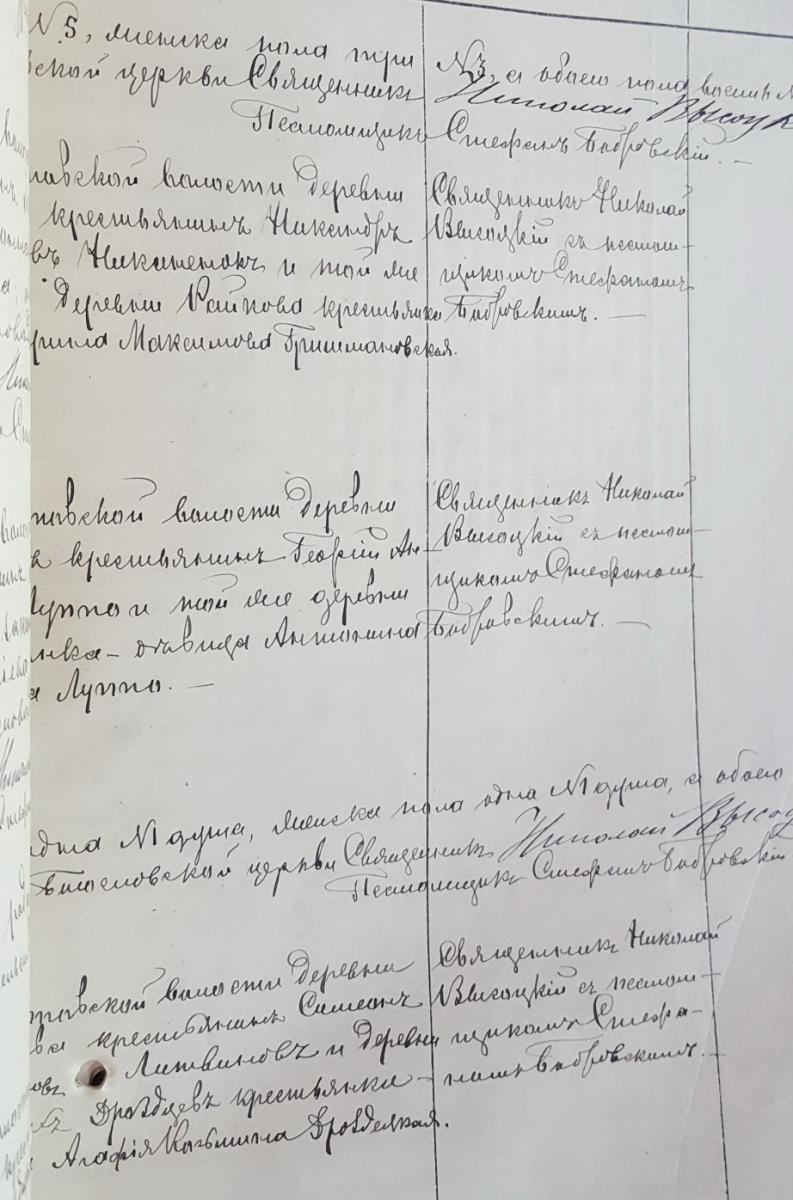 № 5, женска пола три № 3, а обоего пола восемь №
ской церкви Священникъ Николай Высоцк
Псаломщикъ Стефанъ Бобровскій. —
лавской волости деревни
крестьянинъ Никандръ
въ и той же
деревни Райпова крестьянка
рина Максимова Гришмановская.
Священникъ Николай
Высоцкій съ псалом-
щикомъ Стефаномъ
Бобровскимъ. —
тавской волости деревни
а крестьянинъ Георгій Ан-
Луппо и той же деревни
нка - дѣвица Антонина
а Луппо. —
Священникъ Николай
Высоцкій съ псалом-
щикомъ Стефаномъ
Бобровскимъ. —
одна №1 душа, женска пола одна №1 душа, а обоего
церкви Священникъ Николай Высоц
Псаломщикъ Стефанъ Бобровскій
тавской волости деревни
ва крестьянинъ Симеонъ
овъ Литвиновъ и деревни
крестьянка -
Агафія Козьмина Дроздецкая.
Священникъ Николай
Высоцкій съ псалом-
щикомъ Стефа-
номъ Бобровскимъ. —